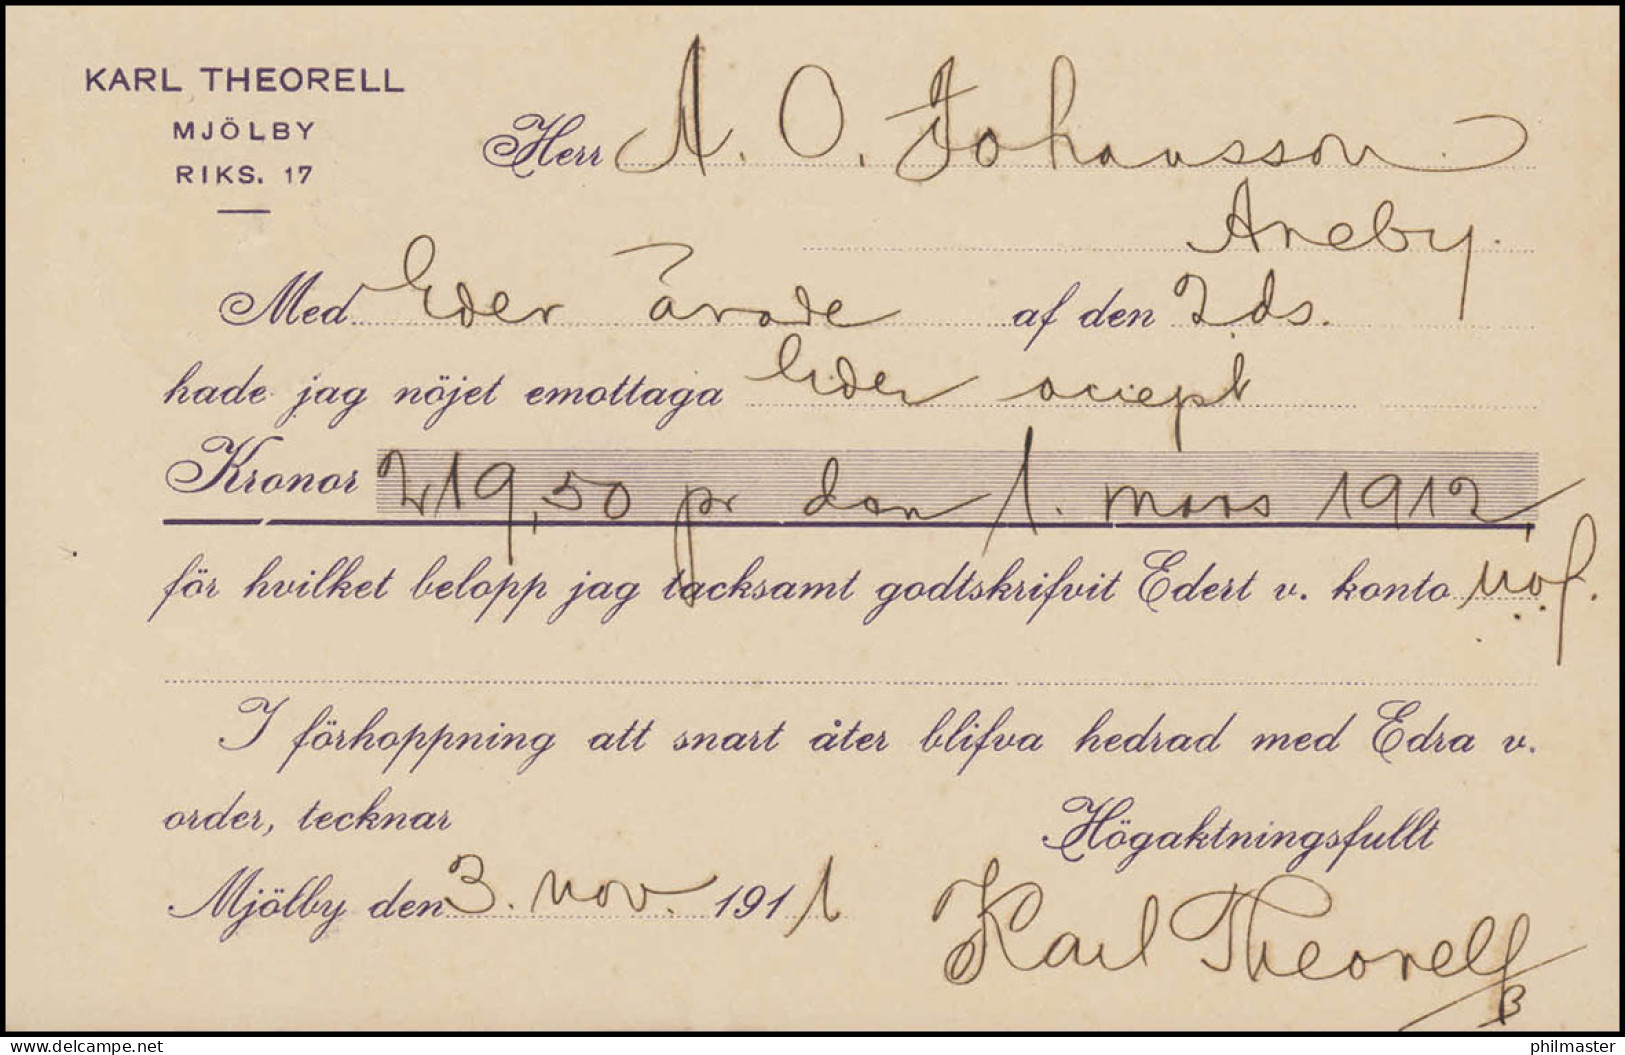 KARL THEORELL
MJÖLBY
RIKS. 17
Herr A. O. Johansson
Aneby.
Med Eder ärade af den 2 ds.
hade jag nöjet emottaga Eder accept
Kronor 219,50 pr den 1. mars 1912,
för hvilket belopp jag tacksamt godtskrifvit Edert v. konto
I förhoppning att snart åter blifva hedrad med Edra v.
order, tecknar
Högaktningsfullt
Mjölby den 3. nov. 1911
Karl Theorell
delcampe.net
philmaster